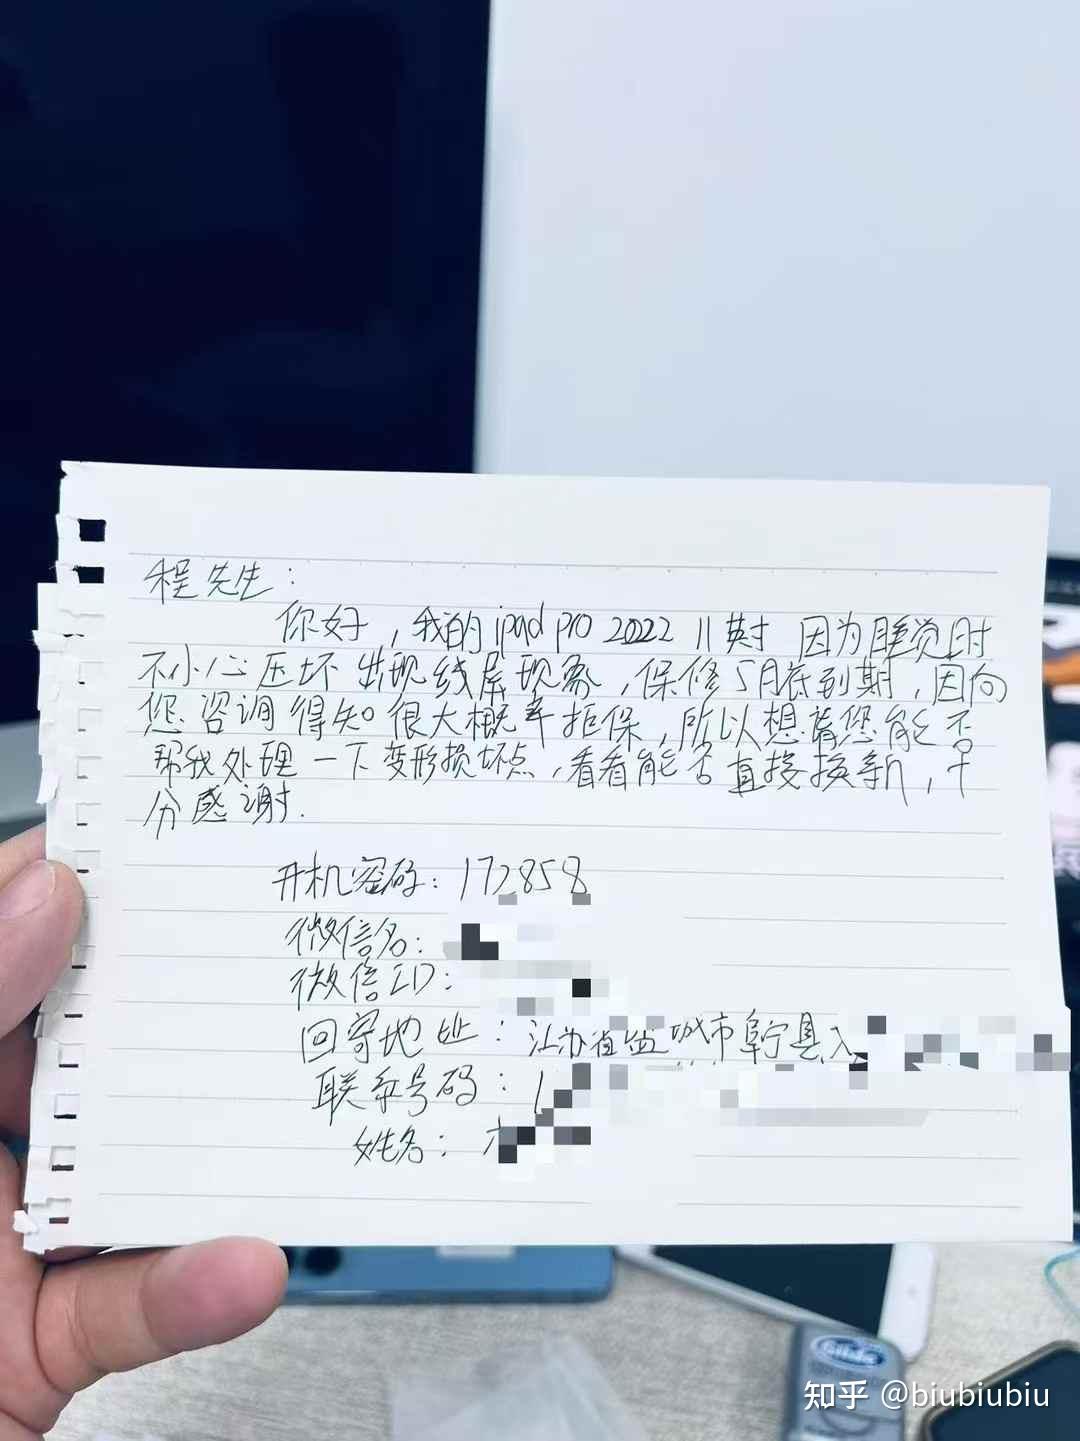 程先生：
你好，我的ipad pro 2022 11英寸 因为睡觉时
不小心压坏 出现线屏现象，保修5月底到期，因向
您咨询得知很大概率拒保，所以想请您能否
帮我处理一下变形损坏点，看看能否直接换新，十
分感谢.
开机密码：172858
微信名：
微信ID：
回寄地址：江苏省盐城市阜宁县
联系号码：1
姓名：
Glide
知乎 @biubiubiu